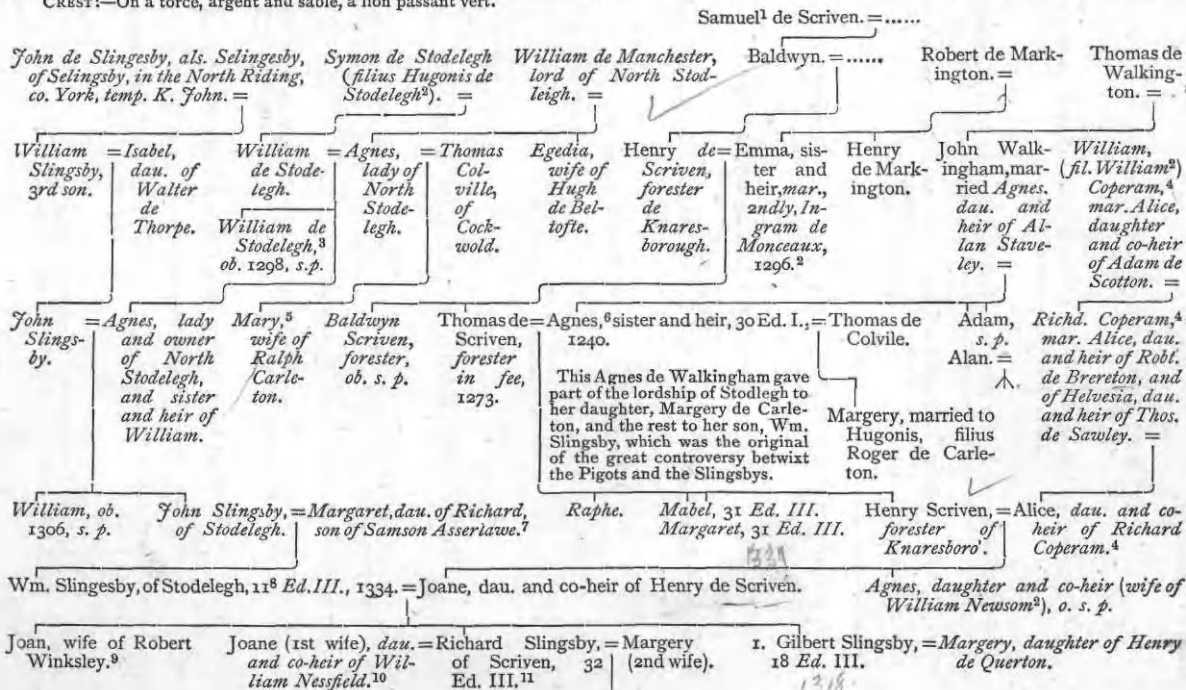 CREST:—On a torce, argent and sable, a lion passant vert.
Samuel¹ de Scriven. = ......
John de Slingesby, als. Selingesby,
of Selingsby, in the North Riding,
co. York, temp. K. John. =
Symon de Stodelegh
(filius Hugonis de
Stodelegh²). =
William de Manchester,
lord of North Stod-
leigh. =
Baldwyn. = ......
Robert de Mark-
ington. =
Thomas de
Walking-
ton. =
William
Slingsby,
3rd son.
= Isabel,
dau. of
Walter
de
Thorpe.
William
de Stode-
legh.
= Agnes,
lady of
North
Stode-
legh.
= Thomas
Col-
ville,
of
Cock-
wold.
Egedia,
wife of
Hugh
de Bel-
tofte.
Henry de
Scriven,
forester
de
Knares-
borough.
= Emma, sis-
ter and
heir, mar.,
2ndly, In-
gram de
Monceaux,
1296.²
Henry
de Mark-
ington.
John Walk-
ingham, mar-
ried Agnes.
dau. and
heir of Al-
lan Stave-
ley. =
William,
(fil. William²)
Coperam,⁴
mar. Alice,
daughter
and co-heir
of Adam de
Scotton. =
William de
Stodelegh,³
ob. 1298, s.p.
John
Slings-
by.
= Agnes, lady
and owner
of North
Stodelegh,
and sister
and heir of
William.
Mary,⁵
wife of
Ralph
Carle-
ton.
Baldwyn
Scriven,
forester,
ob. s. p.
Thomas de
Scriven,
forester
in fee,
1273.
= Agnes,⁶ sister and heir, 30 Ed. I.,
1240.
= Thomas de
Colvile.
Adam,
s. p.
Alan. =
Richd. Coperam,⁴
mar. Alice, dau.
and heir of Robt.
de Brereton, and
of Helvesia, dau.
and heir of Thos.
de Sawley. =
This Agnes de Walkingham gave
part of the lordship of Stodlegh to
her daughter, Margery de Carle-
ton, and the rest to her son, Wm.
Slingsby, which was the original
of the great controversy betwixt
the Pigots and the Slingsbys.
Margery, married to
Hugonis, filius
Roger de Carle-
ton.
William, ob.
1306, s. p.
John Slingsby,
of Stodelegh.
= Margaret, dau. of Richard,
son of Samson Asserlawe.⁷
Raphe.
Mabel, 31 Ed. III.
Margaret, 31 Ed. III.
Henry Scriven,
forester of
Knaresboro'.
= Alice, dau. and co-
heir of Richard
Coperam.⁴
Wm. Slingesby, of Stodelegh, 11⁸ Ed. III., 1334. = Joane, dau. and co-heir of Henry de Scriven.
Agnes, daughter and co-heir (wife of
William Newsom²), o. s. p.
Joan, wife of Robert
Winksley.⁹
Joane (1st wife), dau.
and co-heir of Wil-
liam Nessfield.¹⁰
= Richard Slingsby,
of Scriven, 32
Ed. III.¹¹
= Margery
(2nd wife).
1. Gilbert Slingsby,
18 Ed. III.
= Margery, daughter of Henry
de Querton.